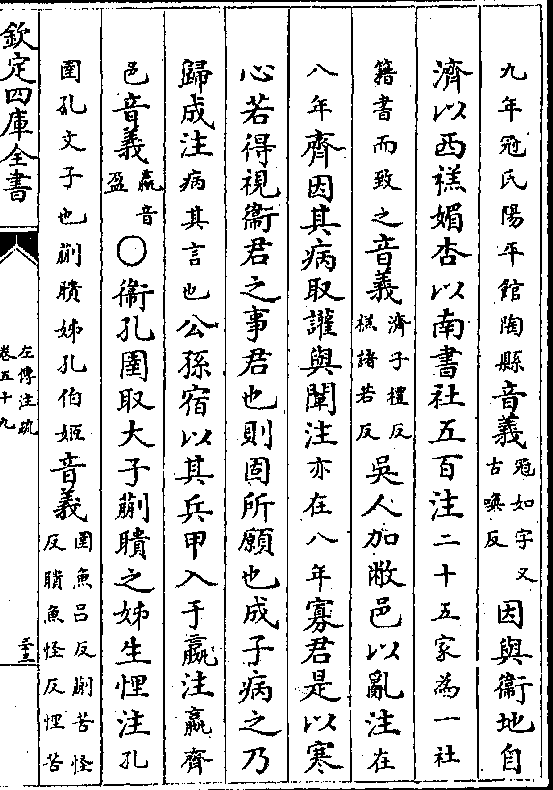 九年冠氏陽平館陶縣音義冠如字又古喚反因與衞地自
濟以西禚媚杏以南書社五百注二十五家為一社
籍書而致之音義濟子禮反禚諸若反吳人加敝邑以亂注在
八年齊因其病取讙與闡注亦在八年寡君是以寒
心若得視衞君之事君也則固所願也成子病之乃
歸成注病其言也公孫宿以其兵甲入于嬴注嬴齊
邑音義嬴音盈○衞孔圉取大子蒯聵之姊生悝注孔
圉孔文子也蒯聵姊孔伯姬音義圉魚呂反蒯苦怪反聵魚怪反悝苦
欽定四庫全書
左傳注疏
卷五十九
三十三